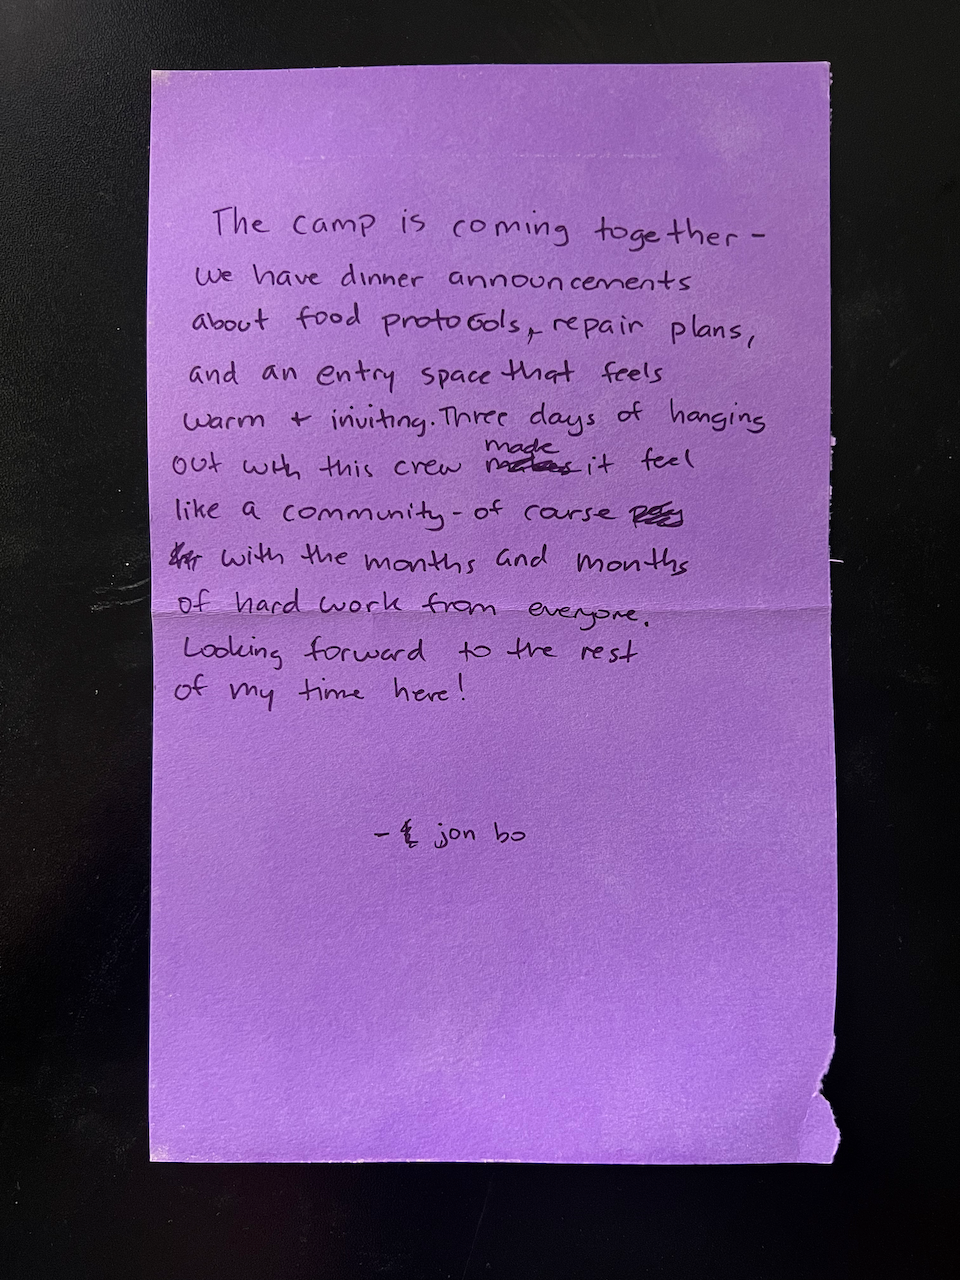 The camp is coming together -
we have dinner announcements
about food protocols, repair plans,
and an entry space that feels
warm + inviting. Three days of hanging
out with this crew made it feel
like a community - of course
with the months and months
of hard work from everyone.
Looking forward to the rest
of my time here!
- jon bo